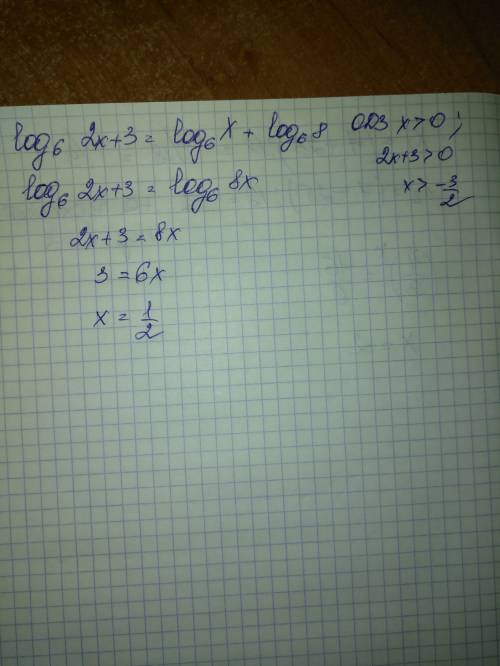 log₆ 2x+3 = log₆ x + log₆ 8 ОДЗ x>0 ;
2x+3>0
log₆ 2x+3 = log₆ 8x
x> -3/2
2x+3 = 8x
3 = 6x
x = 1/2